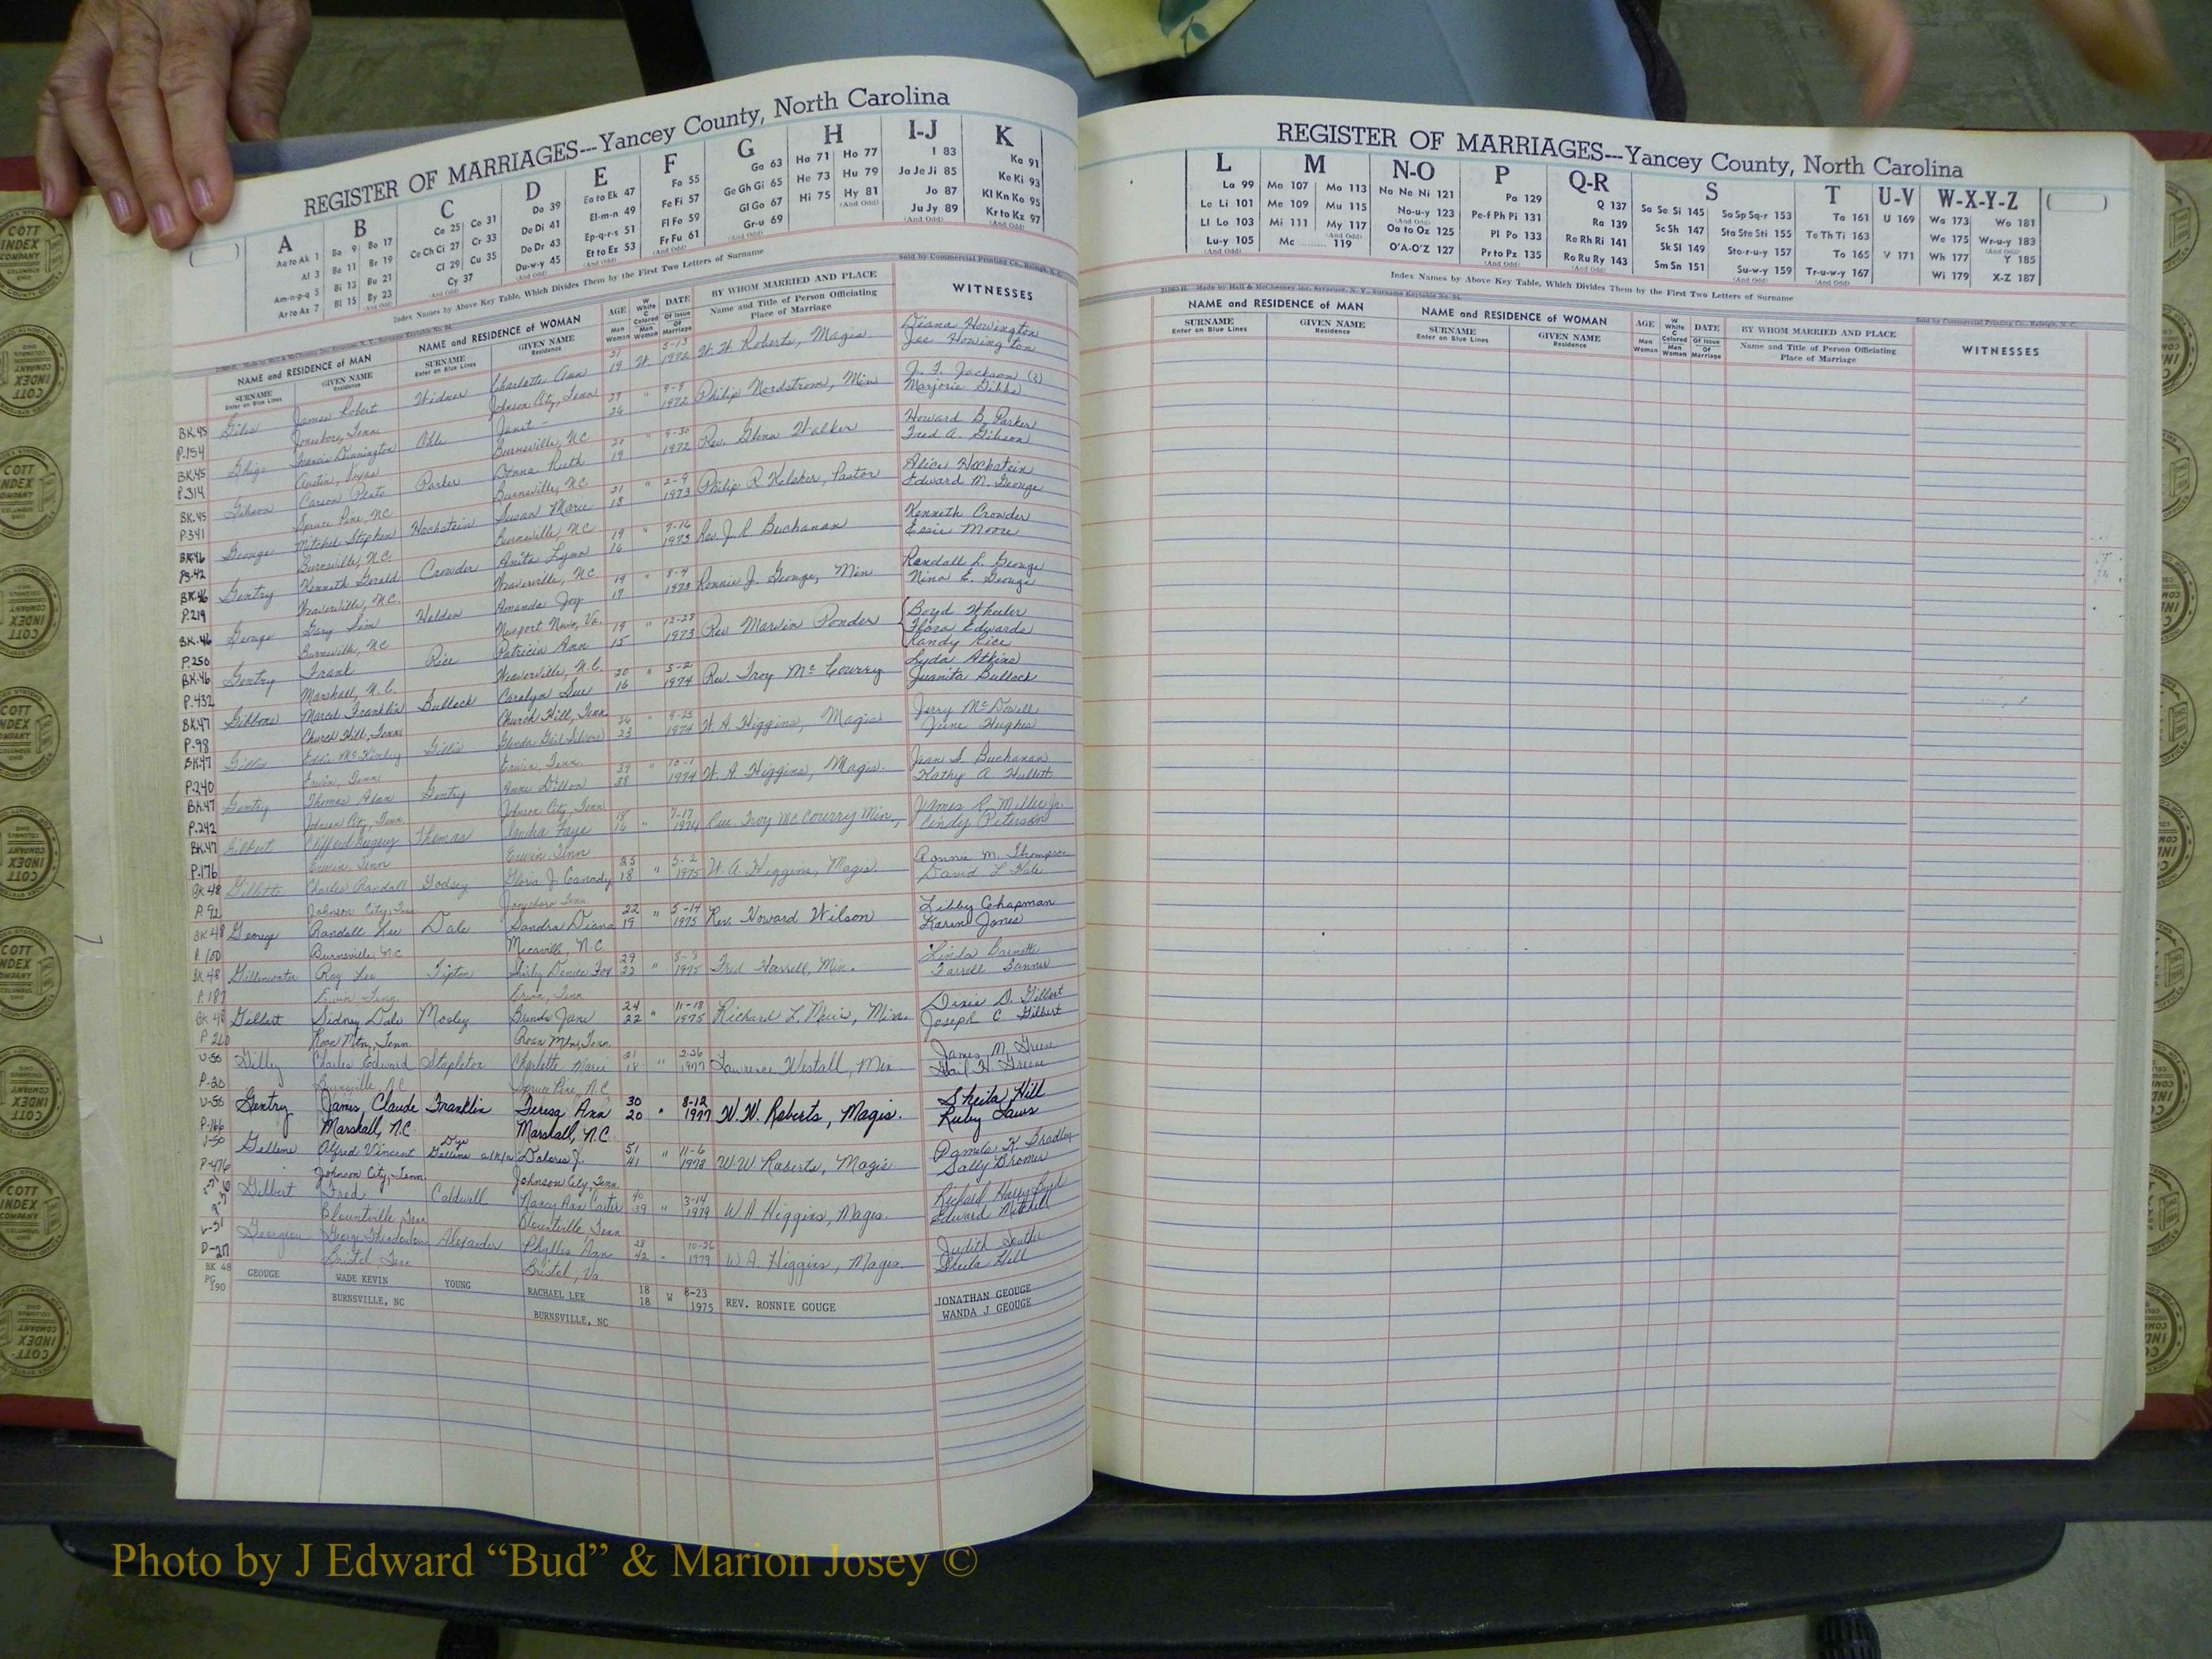 REGISTER OF MARRIAGES---Yancey County, North Carolina
A
Aa to Ak 1
Al 3
Am-n-p-q 5
Ar to Az 7
B
Ba 9 Bo 17
Be 11 Br 19
Bi 13 Bu 21
Bl 15 By 23
(And Odd)
C
Ca 25 Co 31
Ce Ch Ci 27 Cr 33
Cl 29 Cu 35
Cy 37
(And Odd)
D
Da 39
De Di 41
Do Dr 43
Du-w-y 45
(And Odd)
E
Ea to Ek 47
El-m-n 49
Ep-q-r-s 51
Et to Ez 53
(And Odd)
F
Fa 55
Fe Fi 57
Fl Fo 59
Fr Fu 61
(And Odd)
G
Ga 63
Ge Gh Gi 65
Gl Go 67
Gr-u 69
(And Odd)
H
Ha 71 Ho 77
He 73 Hu 79
Hi 75 Hy 81
(And Odd)
I-J
I 83
Ja Je Ji 85
Jo 87
Ju Jy 89
(And Odd)
K
Ka 91
Ke Ki 93
Kl Kn Ko 95
Kr to Kz 97
Index Names by Above Key Table, Which Divides Them by the First Two Letters of Surname
Sold by Commercial Printing Co., Raleigh, N. C.
NAME and RESIDENCE of MAN
SURNAME
Enter on Blue Lines
GIVEN NAME
Residence
NAME and RESIDENCE of WOMAN
SURNAME
Enter on Blue Lines
GIVEN NAME
Residence
AGE
Man
Woman
W
White
C
Colored
Man
Woman
DATE
Of Issue
Of
Marriage
BY WHOM MARRIED AND PLACE
Name and Title of Person Officiating
Place of Marriage
WITNESSES
BK.45 James Robert Widner Charlotte Ann 21 W. 5-13 W. W. Roberts, Magis. Diana Howington
P.154 Jonesboro, Tenn Johnson City, Tenn 19 1972 Joe Howington
BK.45 Ohle Janet 29 " 9-9 Philip Nordstrom, Min J. F. Jackson (?)
P.314 Austin, Texas Burnsville, NC 26 1972 Marjorie Gibbs
BK.45 Gibson Carson Plato Parker Donna Ruth 20 " 9-30 Rev. Glenn Walker Howard B. Parker
P.341 Spruce Pine, NC Burnsville, NC 19 1972 Fred A. Gibson
BK.46 George Mitchel Stephen Hochstein Susan Marie 21 " 2-9 Philip R. Keleher, Pastor Alice Hochstein
PG.42 Burnsville, N.C. Burnsville, NC 18 1973 Edward M. George
BK.46 Gentry Kenneth Gerald Crowder Anita Lynn 19 " 7-16 Rev. J. R. Buchanan Kenneth Crowder
P.219 Weaverville, N.C. Weaverville, NC 16 1973 Essie Moore
BK.46 George Gary Helden Amanda Joy 19 " 8-4 Ronnie J. George, Min Randall L. George
P.250 Burnsville, NC Newport News, Va. 17 1973 Nina E. George
BK.46 Gentry Frank Rice Patricia Ann 19 " 12-28 Rev Marvin Ponder Boyd Wheeler
Flora Edwards
P.432 Marshall, N.C. Weaverville, N.C. 15 1973 Randy Rice
BK.47 Gibbons Marcel Franklin Bullock Carolyn Sue 20 " 5-2 Rev. Troy McCourry Lyda Atkins
P.98 Church Hill, Tenn Church Hill, Tenn 16 1974 Juanita Bullock
BK.47 Gillis Eddie McKinley Gillis " 9-25 W. A. Higgins, Magis Jerry McDowell
P.240 Erwin, Tenn Erwin, Tenn. 23 1974 June Hughes
BK.47 Gentry Thomas Alan Gentry Anne Dillon 39 " 10-1 W. A. Higgins, Magis. Jean S. Buchanan
P.242 Johnson City, Tenn Johnson City, Tenn 38 1974 Kathy A.
BK.47 Gilbert Clifford Thomas Sandra Faye 18 " 7-17 Troy McCourry Min, James R. Miller Jr.
P.176 Erwin Tenn Erwin Tenn 16 1974 Cindy Peterson
BK 48 Gillette Charles Randall Godsey Gloria J Canady 25 " 5-2 W. A. Higgins, Magis. Ronnie M. Thompson
P.92 Johnson City, Tenn Jonesboro Tenn 18 1975 David L Hale
BK 48 George Randall Lee Dale Sandra Diana 22 " 5-14 Rev. Howard Wilson Libby Chapman
P.100 Burnsville, NC Micaville, N.C 19 1975 Karen Jones
BK 48 Gillenwater Roy Lee Tipton Shirly Denice Fox 29 " 8-8 Fred Harrell, Min. Linda Barnette
P.187 Erwin Tenn. Erwin, Tenn 22 1975
BK 48 Gilbert Sidney Dale Mosley Brenda Jane 24 " 11-18 Richard L. Min. Dixie D. Gilbert
P 260 Roan Mtn, Tenn. Roan Mtn, Tenn. 22 1975 Joseph C Gilbert
V-50 Gilley Charles Edward Stapleton Charlotte Marie 21 " 2-26 Lawrence Westall, Min James M. Greene
P-20 Burnsville, N.C Spruce Pine, N.C. 18 1977 Gail H Greene
V-50 Gentry James Claude Franklin Teresa Ann 30 " 8-12 W. W. Roberts, Magis. Sheila Hill
P-166 Marshall, N.C. Marshall, N.C. 20 1977 Ruby Laws
V-50 Gellene Alfred Vincent Dye Gellene a/k/a Dolores J. 51 " 11-6 W. W. Roberts, Magis. Pamela K Bradley
P-476 Johnson City, Tenn. Johnson City, Tenn. 41 1978 Sally Bromer
Gilbert Fred Caldwell Nancy Ann Carter 40 " 3-14 W A Higgins, Magis. Richard Harry Byrd
Blountville Tenn Blountville, Tenn 39 1979 Edward Mitchell
V-51 George Alexander Phyllis Ann 28 " 10-26 W A. Higgins, Magis Judith
P-217 Bristol Tenn Bristol, Va. 42 1979 Sheila Hill
BK 48 GEOUGE WADE KEVIN YOUNG RACHAEL LEE 18 W 8-23 REV. RONNIE GOUGE JONATHAN GEOUGE
PG 190 BURNSVILLE, NC BURNSVILLE, NC 18 1975 WANDA J GEOUGE
REGISTER OF MARRIAGES---Yancey County, North Carolina
L
La 99
Le Li 101
Ll Lo 103
Lu-y 105
(And Odd)
M
Ma 107 Mo 113
Me 109 Mu 115
Mi 111 My 117
(And Odd)
Mc ........ 119
N-O
Na Ne Ni 121
No-u-y 123
(And Odd)
Oa to Oz 125
O'A-O'Z 127
P
Pa 129
Pe-f Ph Pi 131
Pl Po 133
Pr to Pz 135
(And Odd)
Q-R
Q 137
Ra 139
Re Rh Ri 141
Ro Ru Ry 143
(And Odd)
S
Sa Se Si 145 So Sp Sq-r 153
Sc Sh 147 Sta Ste Sti 155
Sk Sl 149 Sto-r-u-y 157
Sm Sn 151 Su-w-y 159
(And Odd)
T
Ta 161
Te Th Ti 163
To 165
Tr-u-w-y 167
(And Odd)
U-V
U 169
V 171
W-X-Y-Z
Wa 173 Wo 181
We 175 Wr-u-y 183
(And Odd)
Wh 177 Y 185
Wi 179 X-Z 187
Index Names by Above Key Table, Which Divides Them by the First Two Letters of Surname
Made by Hall & McChesney Inc. Syracuse, N. Y., Surname Keytable No. 94.
Sold by Commercial Printing Co., Raleigh, N. C.
NAME and RESIDENCE of MAN
SURNAME
Enter on Blue Lines
GIVEN NAME
Residence
NAME and RESIDENCE of WOMAN
SURNAME
Enter on Blue Lines
GIVEN NAME
Residence
AGE
Man
Woman
W
White
C
Colored
Man
Woman
DATE
Of Issue
Of
Marriage
BY WHOM MARRIED AND PLACE
Name and Title of Person Officiating
Place of Marriage
WITNESSES
COTT
INDEX
COMPANY
COLUMBUS
OHIO
Photo by J Edward “Bud” & Marion Josey ©